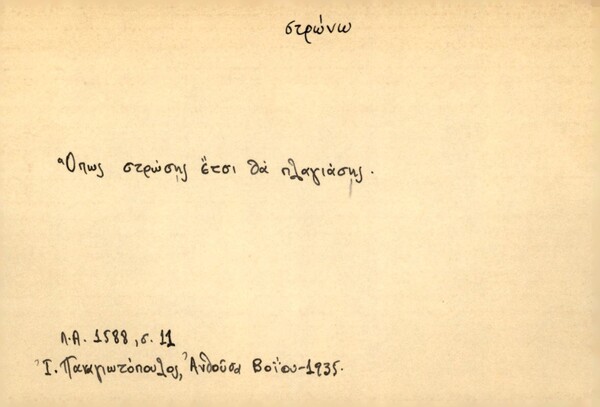 στρώνω
Ὅπως στρώσῃς ἔτσι θὰ πλαγιάσῃς.
Λ.Α. 1588, σ. 11
Ἰ. Παναγιωτόπουλος, Ἀνθοῦσα Βοΐου-1935.